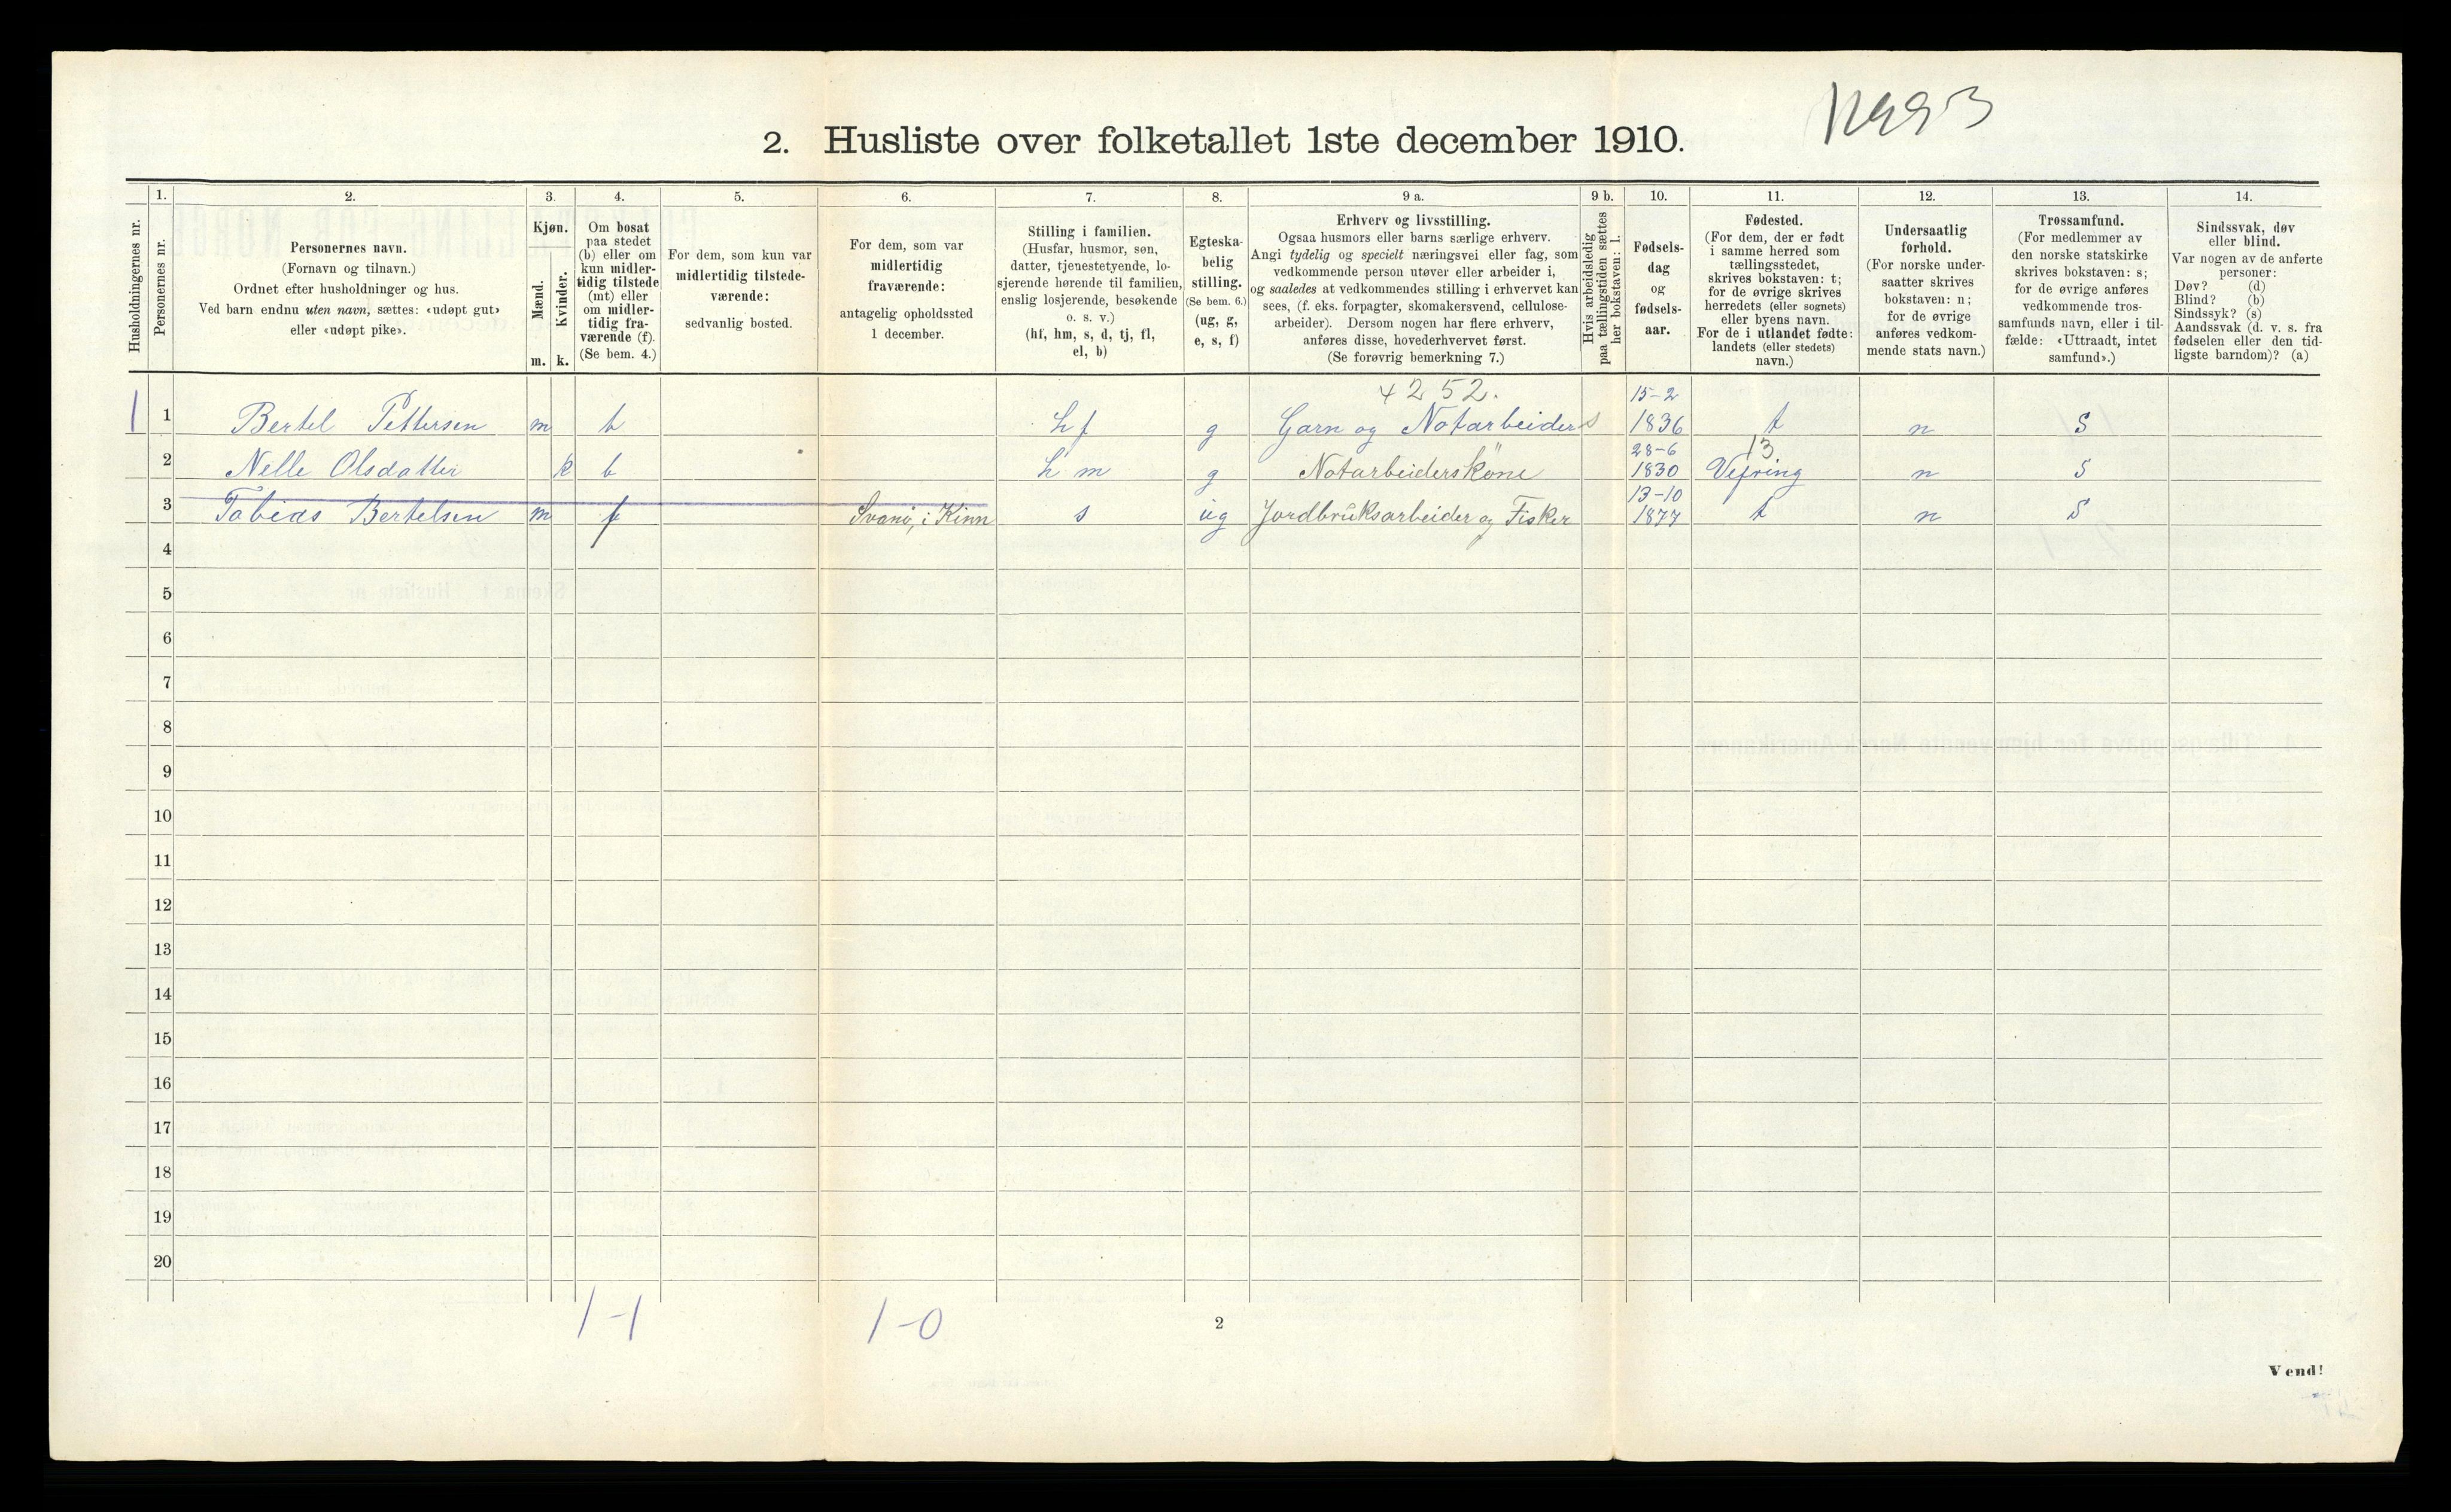 2. Husliste over folketallet 1ste december 1910.
Husholdningernes nr.
1. Personernes nr.
2.
Personernes navn.
(Fornavn og tilnavn.)
Ordnet efter husholdninger og hus.
Ved barn endnu uten navn, sættes: «udøpt gut»
eller «udøpt pike».
3.
Kjøn.
Mænd. m.
Kvinder. k.
4.
Om bosat
paa stedet
(b) eller om
kun midler-
tidig tilstede
(mt) eller
om midler-
tidig fra-
værende (f).
(Se bem. 4.)
5.
For dem, som kun var
midlertidig tilstede-
værende:
sedvanlig bosted.
6.
For dem, som var
midlertidig
fraværende:
antagelig opholdssted
1 december.
7.
Stilling i familien.
(Husfar, husmor, søn,
datter, tjenestetyende, lo-
sjerende hørende til familien,
enslig losjerende, besøkende
o. s. v.)
(hf, hm, s, d, tj, fl,
el, b)
8.
Egteska-
belig
stilling.
(Se bem. 6.)
(ug, g,
e, s, f)
9 a.
Erhverv og livsstilling.
Ogsaa husmors eller barns særlige erhverv.
Angi tydelig og specielt næringsvei eller fag, som
vedkommende person utøver eller arbeider i,
og saaledes at vedkommendes stilling i erhvervet kan
sees, (f. eks. forpagter, skomakersvend, cellulose-
arbeider). Dersom nogen har flere erhverv,
anføres disse, hovederhvervet først.
(Se forøvrig bemerkning 7.)
9 b.
Hvis arbeidsledig
paa tællingstiden sættes
her bokstaven: l.
10.
Fødsels-
dag
og
fødsels-
aar.
11.
Fødested.
(For dem, der er født
i samme herred som
tællingsstedet,
skrives bokstaven: t;
for de øvrige skrives
herredets (eller sognets)
eller byens navn.
For de i utlandet fødte:
landets (eller stedets)
navn.)
12.
Undersaatlig
forhold.
(For norske under-
saatter skrives
bokstaven: n;
for de øvrige
anføres vedkom-
mende stats navn.)
13.
Trossamfund.
(For medlemmer av
den norske statskirke
skrives bokstaven: s;
for de øvrige anføres
vedkommende tros-
samfunds navn, eller i til-
fælde: «Uttraadt, intet
samfund».)
14.
Sindssvak, døv
eller blind.
Var nogen av de anførte
personer:
Døv? (d)
Blind? (b)
Sindssyk? (s)
Aandssvak (d. v. s. fra
fødselen eller den tid-
ligste barndom)? (a)
4252.
1 1 Bertel Pettersen m b hf g Garn og Notarbeider s 15-2 1836 t n S
13
2 Nelle Olsdatter k b hm g Notarbeiderskone 28-6 1830 Vefring n S
3 Tobias Bertelsen m f Svanø i Kinn s ug Jordbruksarbeider og Fisker 13-10 1877 t n S
4
5
6
7
8
9
10
11
12
13
14
15
16
17
18
19
20
1-1 1-0
2
Vend!